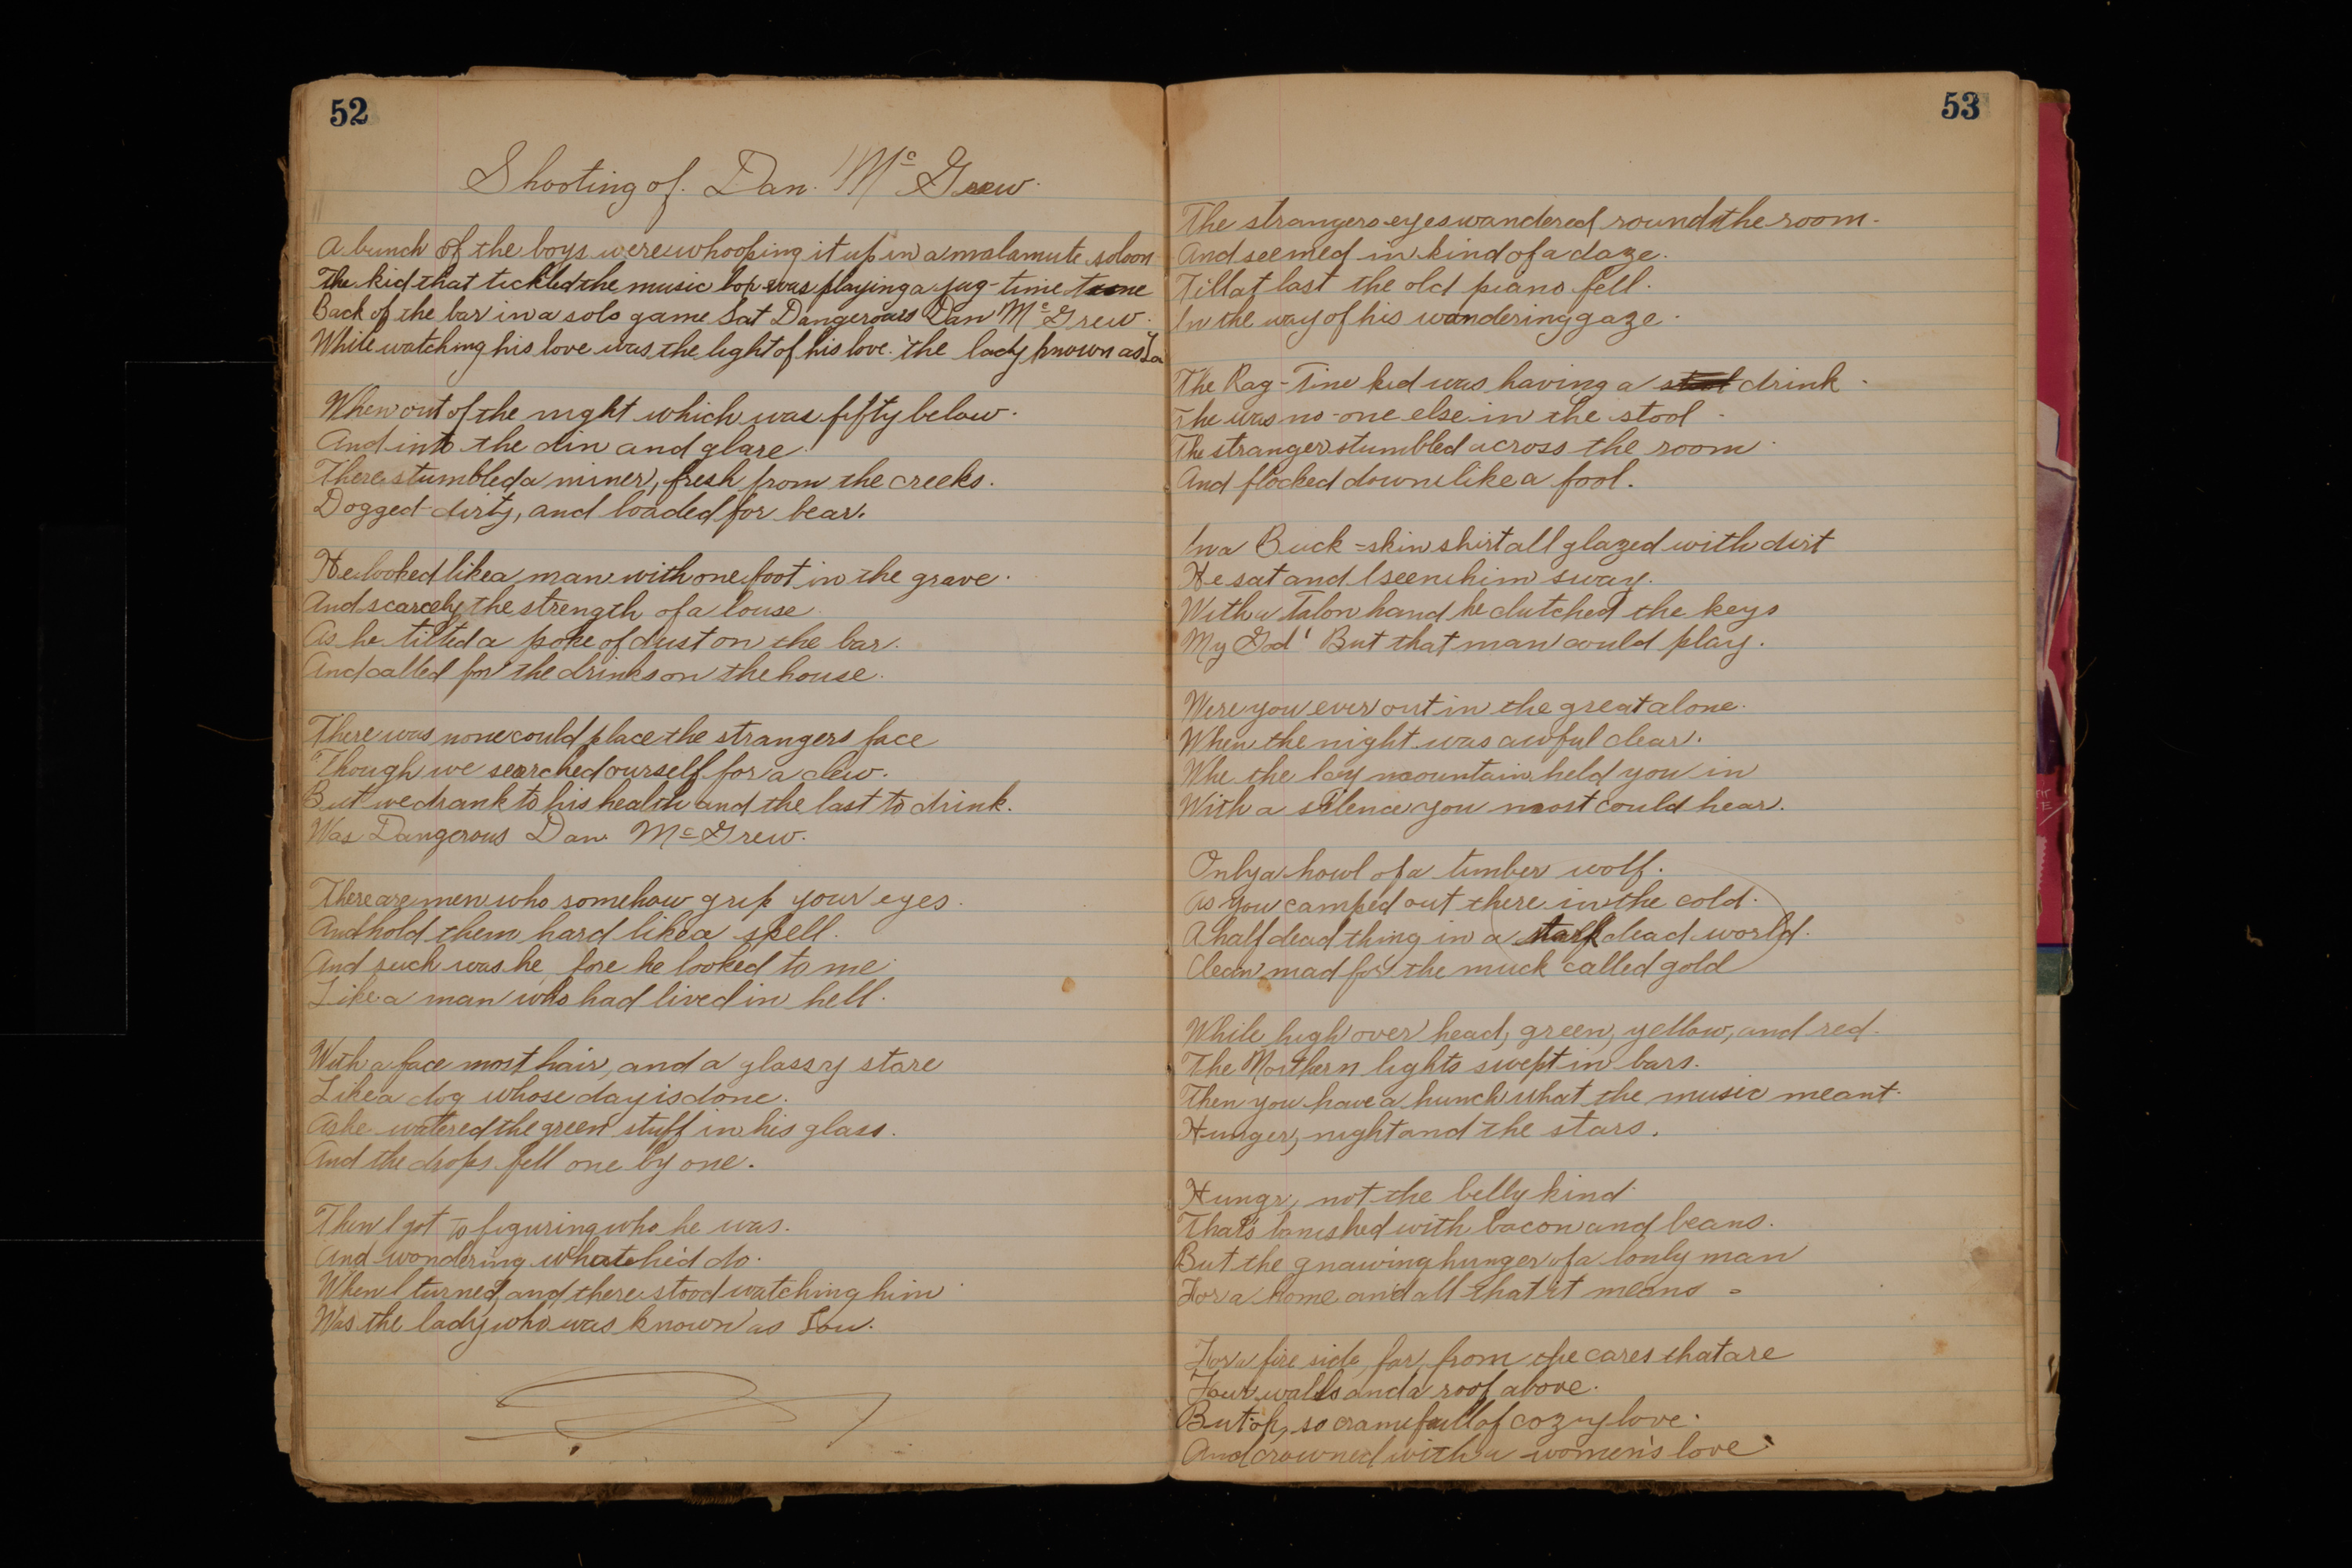 52
Shooting of. Dan. Mc Grew.
A bunch of the boys were whooping it up in a malamute soloon
The kid that tickled the music box was playing a jag-time tune
Back of the bar in a solo game Sat Dangerous Dan Mc Grew.
While watching his love was the light of his love. the lady known as
When out of the night which was fifty below.
And into the din and glare
There stumbled a miner, fresh from the creeks.
Dogged-dirty, and loaded for bear.
He looked like a man with one foot in the grave.
And scarcely the strength of a louse
As he tilted a poke of dust on the bar.
And called for the drinks on the house.
There was none could place the strangers face
Though we searched ourself for a clew.
But we drank to his health and the last to drink.
Was Dangerous Dan Mc Grew.
There are men who somehow grip your eyes.
And hold them hard like a spell.
And such was he, fore he looked to me
Like a man who had lived in hell.
With a face most hair, and a glassy stare
Like a dog whose day is done.
As he watered the green stuff in his glass.
And the drops fell one by one.
Then I got to figuring who he was.
And wondering what he'd do.
When I turned, and there stood watching him
Was the lady who was known as Lou.
53
The strangers eyes wandered round the room.
And seemed in kind of a daze.
Till at last the old piano fell.
In the way of his wandering gaze.
The Rag-Time kid was having a drink.
The was no-one else in the stool
The stranger stumbled across the room
And flocked down like a fool.
In a Buck-skin shirt all glazed with dirt
He sat and I seen him sway.
With a Talon hand he clutched the keys
My God! But that man could play.
Were you ever out in the great alone.
When the night was awful clear.
Whe the Icy mountain held you in
With a silence you most could hear.
Only a howl of a timber wolf.
As you camped out there in the cold.
A half dead thing in a stark dead world.
Clean mad for the muck called gold
While high over head, green, yellow, and red.
The Northern lights swept in bars.
Then you have a hunch what the music meant.
Hunger, night and the stars.
Hungr, not the belly kind
That's banished with bacon and beans.
But the gnawing hunger of a lonly man
For a home and all that it means -
For a fire side far from the cares that are
Four walls and a roof above.
But oh, so crame full of cozy love.
And crowned with a women's love